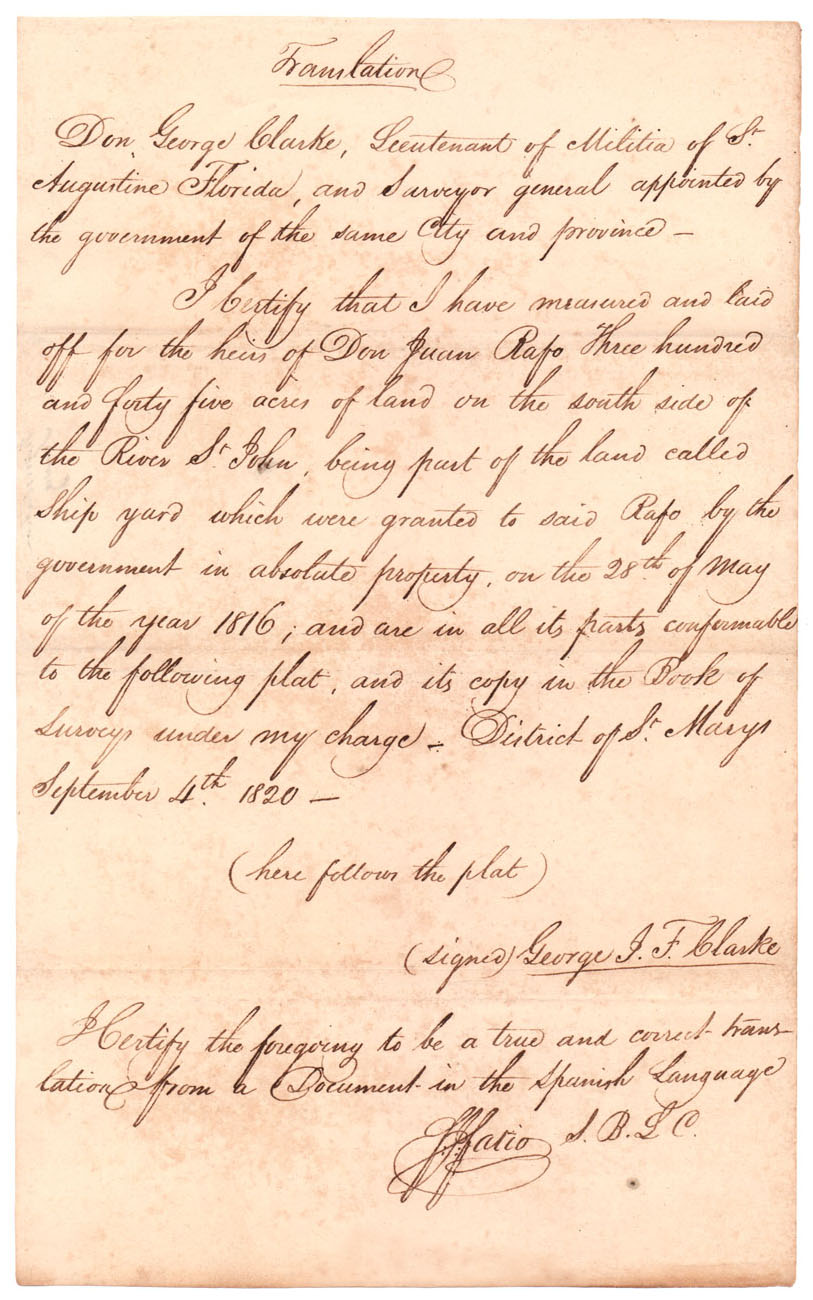 Translation
Don George Clarke, Lieutenant of Militia of St.
Augustine Florida, and Surveyor general appointed by
the government of the same City and province —
I Certify that I have measured and laid
off for the heirs of Don Juan Rafo Three hundred
and forty five acres of land on the south side of
the River St. John, being part of the land called
Ship yard which were granted to said Rafo by the
government in absolute property, on the 28th. of May
of the year 1816; and are in all its parts conformable
to the following plat, and its copy in the Book of
Surveys under my charge – District of St. Marys
September 4th. 1820 —
(here follows the plat)
(signed) George J. F. Clarke
I Certify the foregoing to be a true and correct trans-
lation from a Document in the Spanish Language
F. J. Fatio S. B. L C.